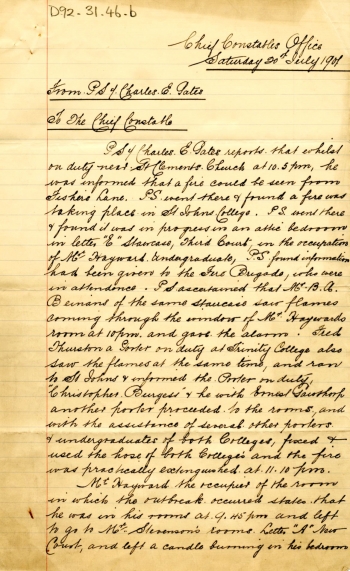 D92.31.46.b
Chief Constables Office
Saturday 20th July 1901
From P.S 4 Charles. E. Yates
To The Chief Constable
P.S 4 Charles. E. Yates reports that whilst
on duty near St Clements Church at 10.5 pm, he
was informed that a fire could be seen from
Fishers Lane. P.S. went there & found a fire was
taking place in St Johns College. P.S. went there
& found it was in progress in an attic bedroom
in letter "E" Staircase, Third Court, in the occupation
of Mr Hayward. Undergraduate, P.S. found information
had been given to the Fire Brigade, who were
in attendence. P.S ascertained that Mr B. A.
Benians of the same staircase saw flames
coming through the window of Mr Haywards
room at 10 pm. and gave the alarm. Fredk
Thurston a Porter on duty at Trinity College also
saw the flames at the same time, and ran
to St Johns & informed the Porter on duty,
Christopher Burgess & he with Ernest Pawthorp
another porter proceeded to the rooms, and
with the assistance of several other porters
& undergraduates of both Colleges, fixed &
used the hose of both Colleges and the fire
was practically extinguished at 11.10 pm.
Mr Hayward the occupier of the room
in which the outbreak occurred states that
he was in his rooms at 9.45 pm and left
to go to Mr Stevenson's rooms. Letter "A" New
Court, and left a candle burning in his bedroom